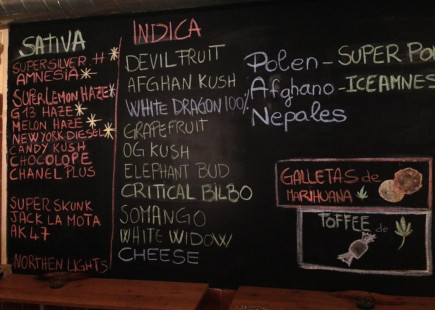 SATIVA
SUPERSILVER H
AMNESIA
SUPERLEMON HAZE
G13 HAZE
MELON HAZE
NEWYORK DIESEL
CANDY KUSH
CHOCOLOPE
CHANEL PLUS
SUPER SKUNK
JACK LA MOTA
AK 47
NORTHEN LIGHTS
INDICA
DEVIL FRUIT
AFGHAN KUSH
WHITE DRAGON 100%
GRAPEFRUIT
OG KUSH
ELEPHANT BUD
CRITICAL BILBO
SOMANGO
WHITE WIDOW
CHEESE
Polen - SUPER
Afghano - ICE
Nepales
GALLETAS de
MARIHUANA
TOFFEE de